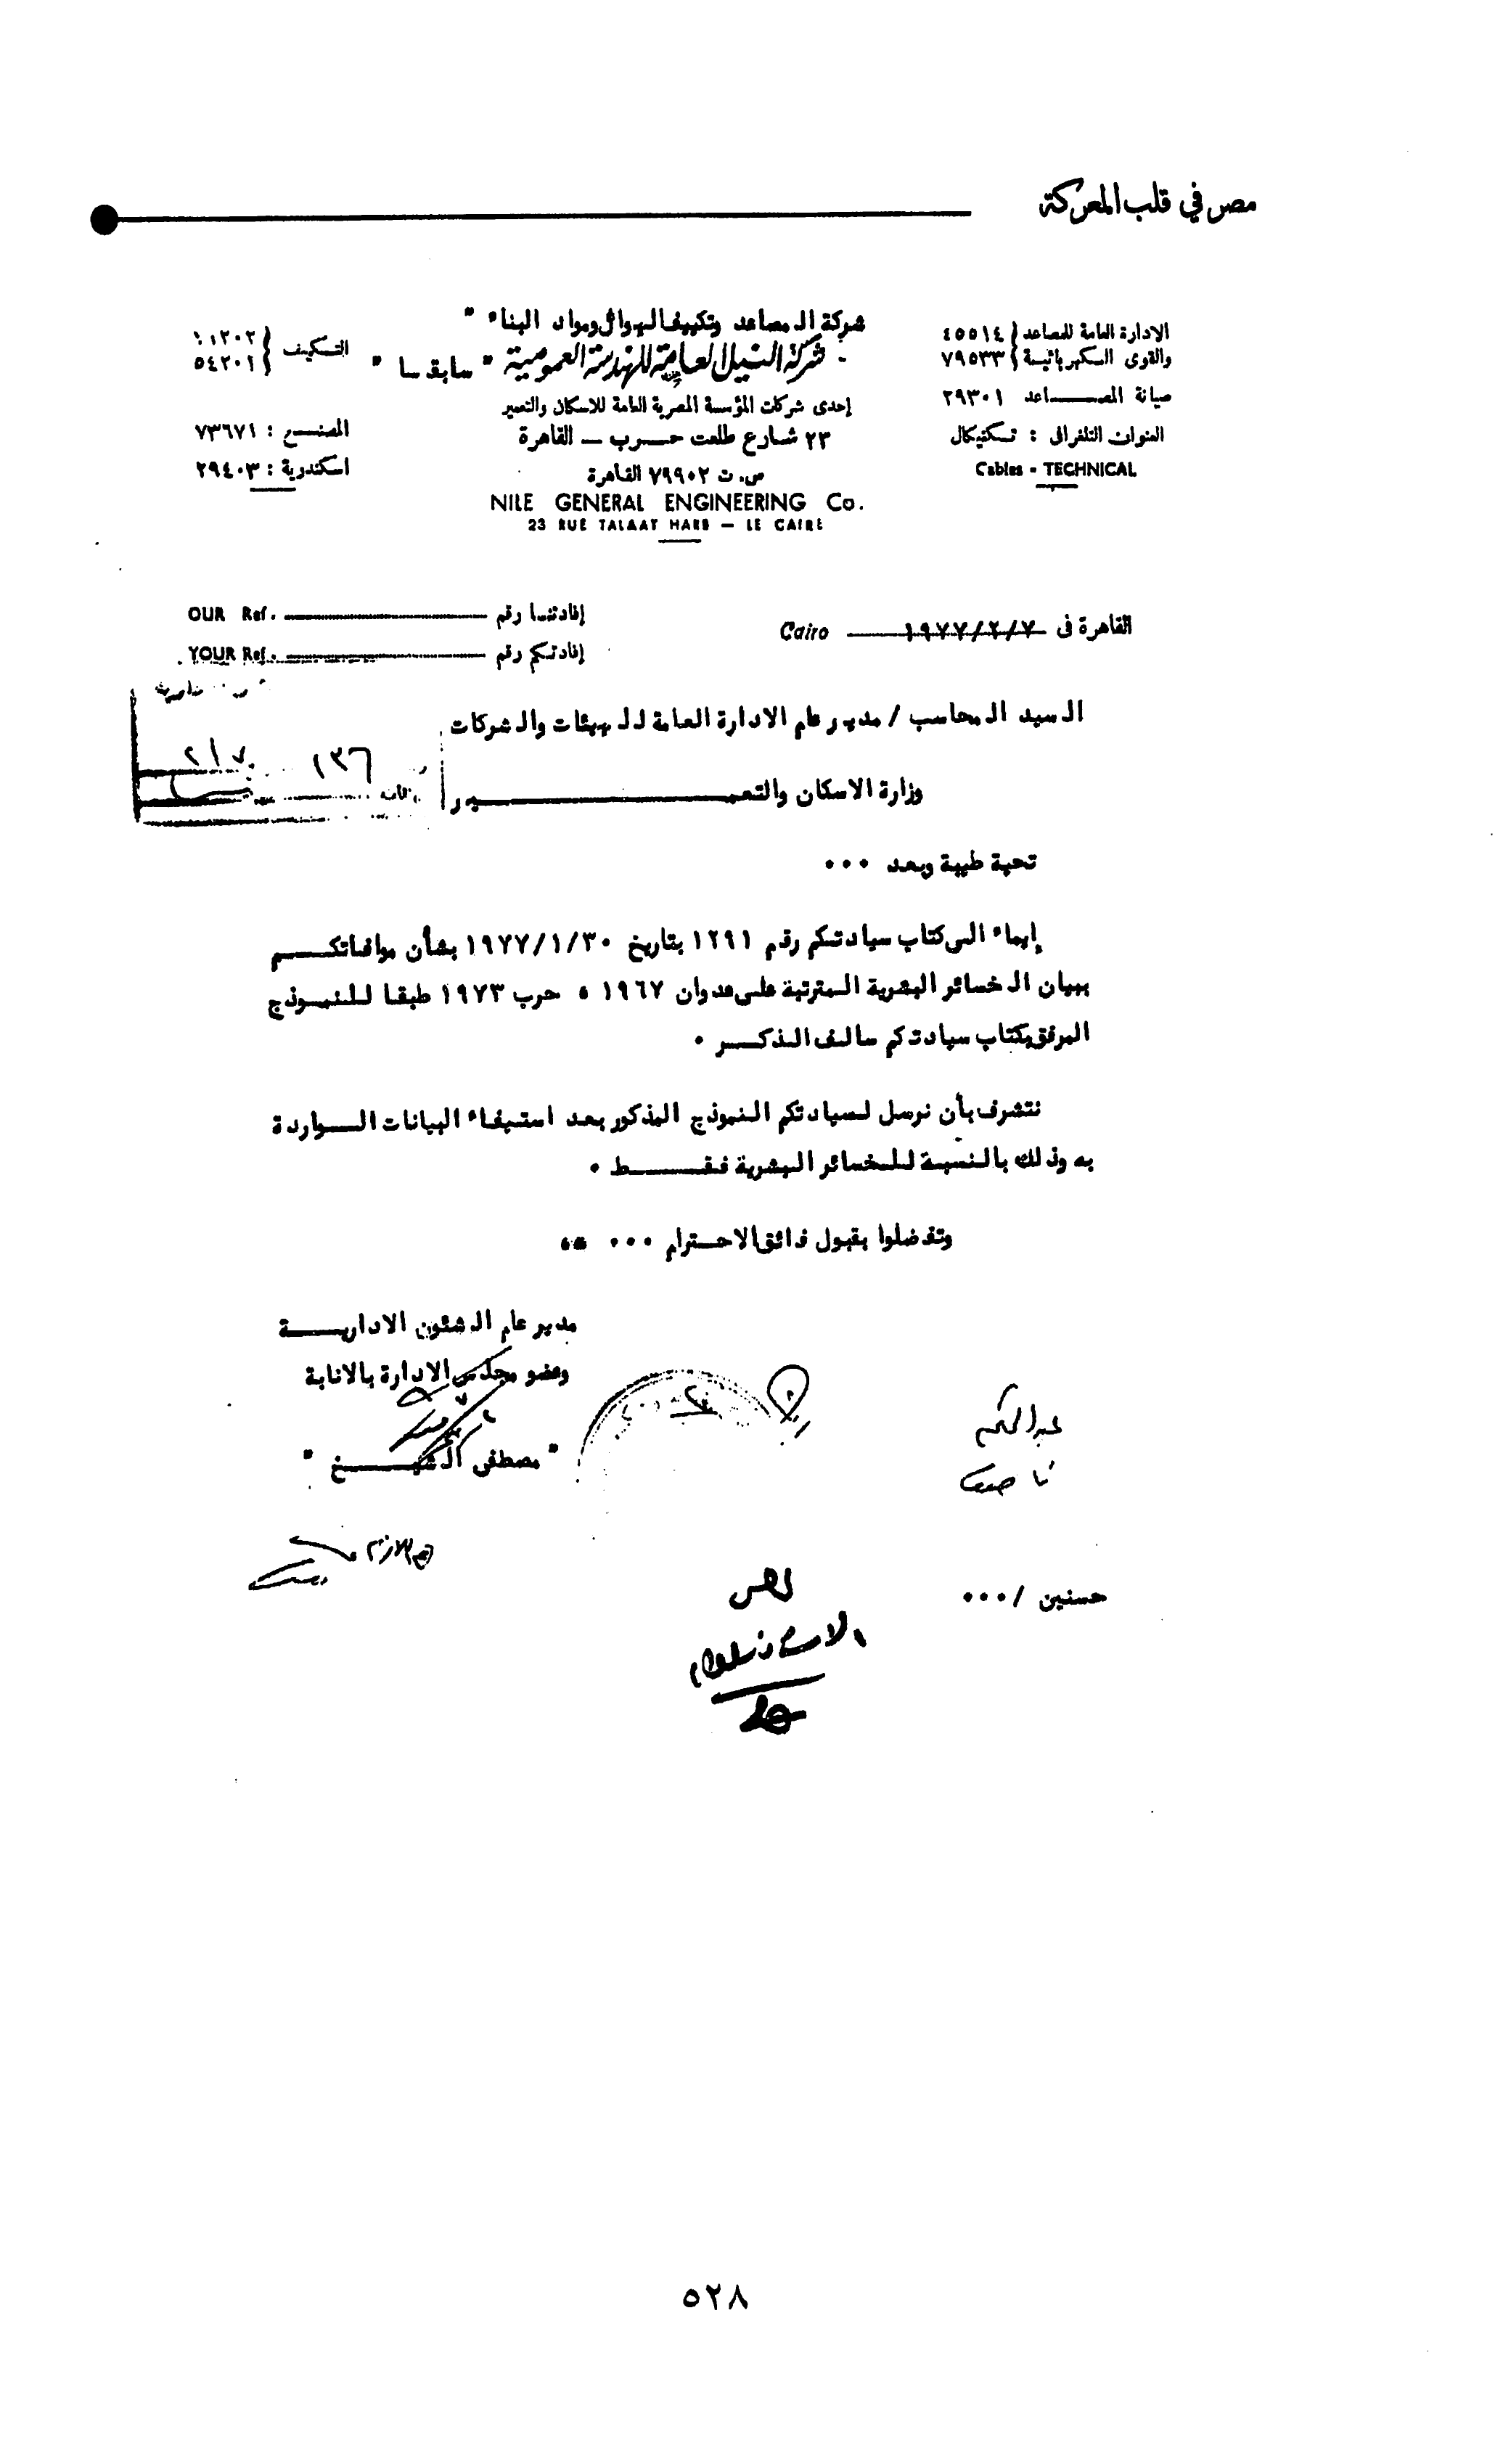 مصر في قلب المعركة
شركة المصاعد وتكييف الهواء ومواد البناء "
شركة النيل العامة للهندسة العمومية " سابقا "
إحدى شركات المؤسسة المصرية العامة للاسكان والتعمير
٢٣ شارع طلعت حرب — القاهرة
س. ت ٧٩٩٠٢ القاهرة
NILE GENERAL ENGINEERING Co.
23 RUE TALAAT HARB — LE CAIRE
الادارة العامة للمصاعد ٤٥٥١٤
والقوى الكهربائية ٧٩٥٣٣
صيانة المصاعد ٢٩٣٠١
العنوان التلغرافى : تكنيكال
Cables - TECHNICAL
التكييف
٥٤٢٠١
المصنع : ٧٣٦٧١
اسكندرية : ٢٩٤٠٣
القاهرة فى ١٩٧٧/٢/٧ Cairo
OUR Ref. إفادتنا رقم
YOUR Ref. إفادتكم رقم
١٣٦ ٢/٧
السيد المحاسب / مدير عام الادارة العامة للهيئات والشركات
وزارة الاسكان والتعمير
تحية طيبة وبعد ٠٠٠
إيماء الى كتاب سيادتكم رقم ١٢٩١ بتاريخ ١٩٧٧/١/٣٠ بشأن موافاتكم
ببيان الخسائر البشرية المترتبة على عدوان ١٩٦٧ ، حرب ١٩٧٣ طبقا للنموذج
المرفق بكتاب سيادتكم سالف الذكر ٠
نتشرف بأن نرسل لسيادتكم النموذج المذكور بعد استيفاء البيانات الواردة
به وذلك بالنسبة للخسائر البشرية فقط ٠
وتفضلوا بقبول فائق الاحترام ٠٠٠ ،،
مدير عام الشئون الادارية
وعضو مجلس الادارة بالانابة
" مصطفى الشيخ "
حسنين / ٠٠٠
٥٢٨